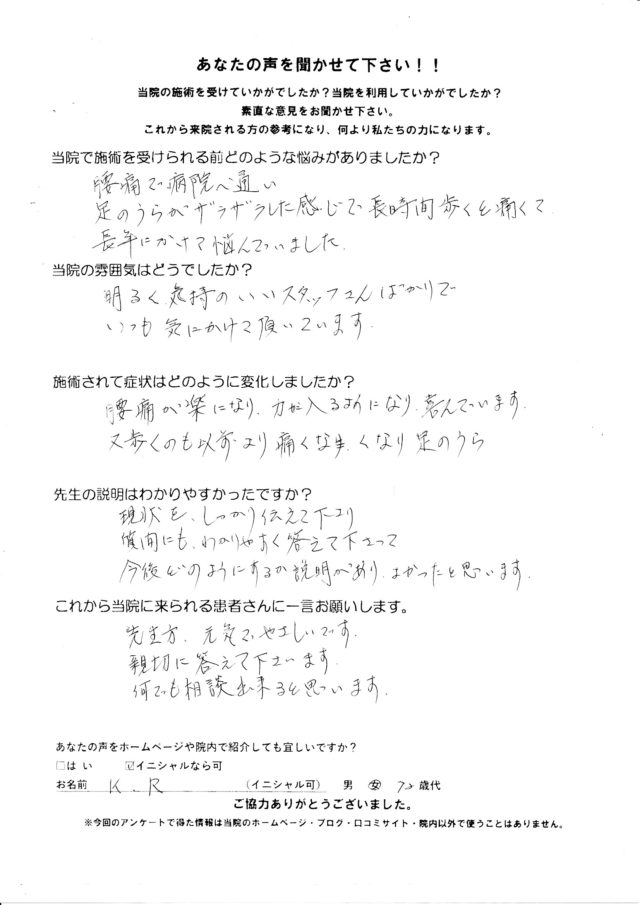 あなたの声を聞かせて下さい！！
当院の施術を受けていかがでしたか？当院を利用していかがでしたか？
素直な意見をお聞かせ下さい。
これから来院される方の参考になり、何より私たちの力になります。
当院で施術を受けられる前どのような悩みがありましたか？
腰痛で病院へ通い
足のうらがザラザラした感じで長時間歩くと痛くて
長年にかけて悩んでいました.
当院の雰囲気はどうでしたか？
明るく.気持のいいスタッフさんばかりで
いつも気にかけて頂いています.
施術されて症状はどのように変化しましたか？
腰痛が楽になり.力が入るようになり.喜んでいます.
又歩くのも以前より痛くな くなり足のうら
先生の説明はわかりやすかったですか？
現状を.しっかり伝えて下さり
質問にも.わかりやすく答えて下さって
今後どのようにするか説明があり.よかったと思います.
これから当院に来られる患者さんに一言お願いします。
先生方.元気でやさしいです.
親切に答えて下さいます.
何でも相談出来ると思っています.
あなたの声をホームページや院内で紹介しても宜しいですか？
□はい ☑イニシャルなら可
お名前 K.R （イニシャル可） 男 女 歳代
ご協力ありがとうございました。
※今回のアンケートで得た情報は当院のホームページ・ブログ・口コミサイト・院内以外で使うことはありません。